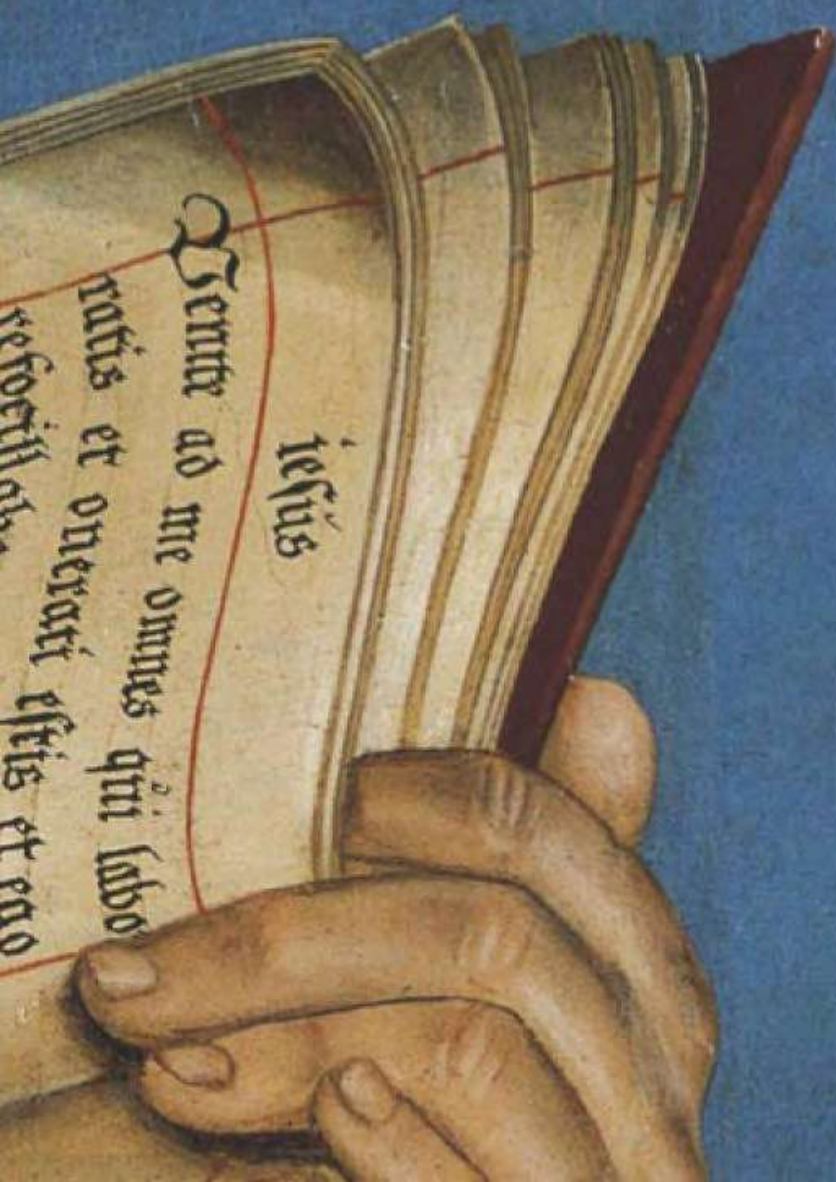 iesus
Venite ad me omnes qui labo
ratis et onerati estis et ego
refocillabo